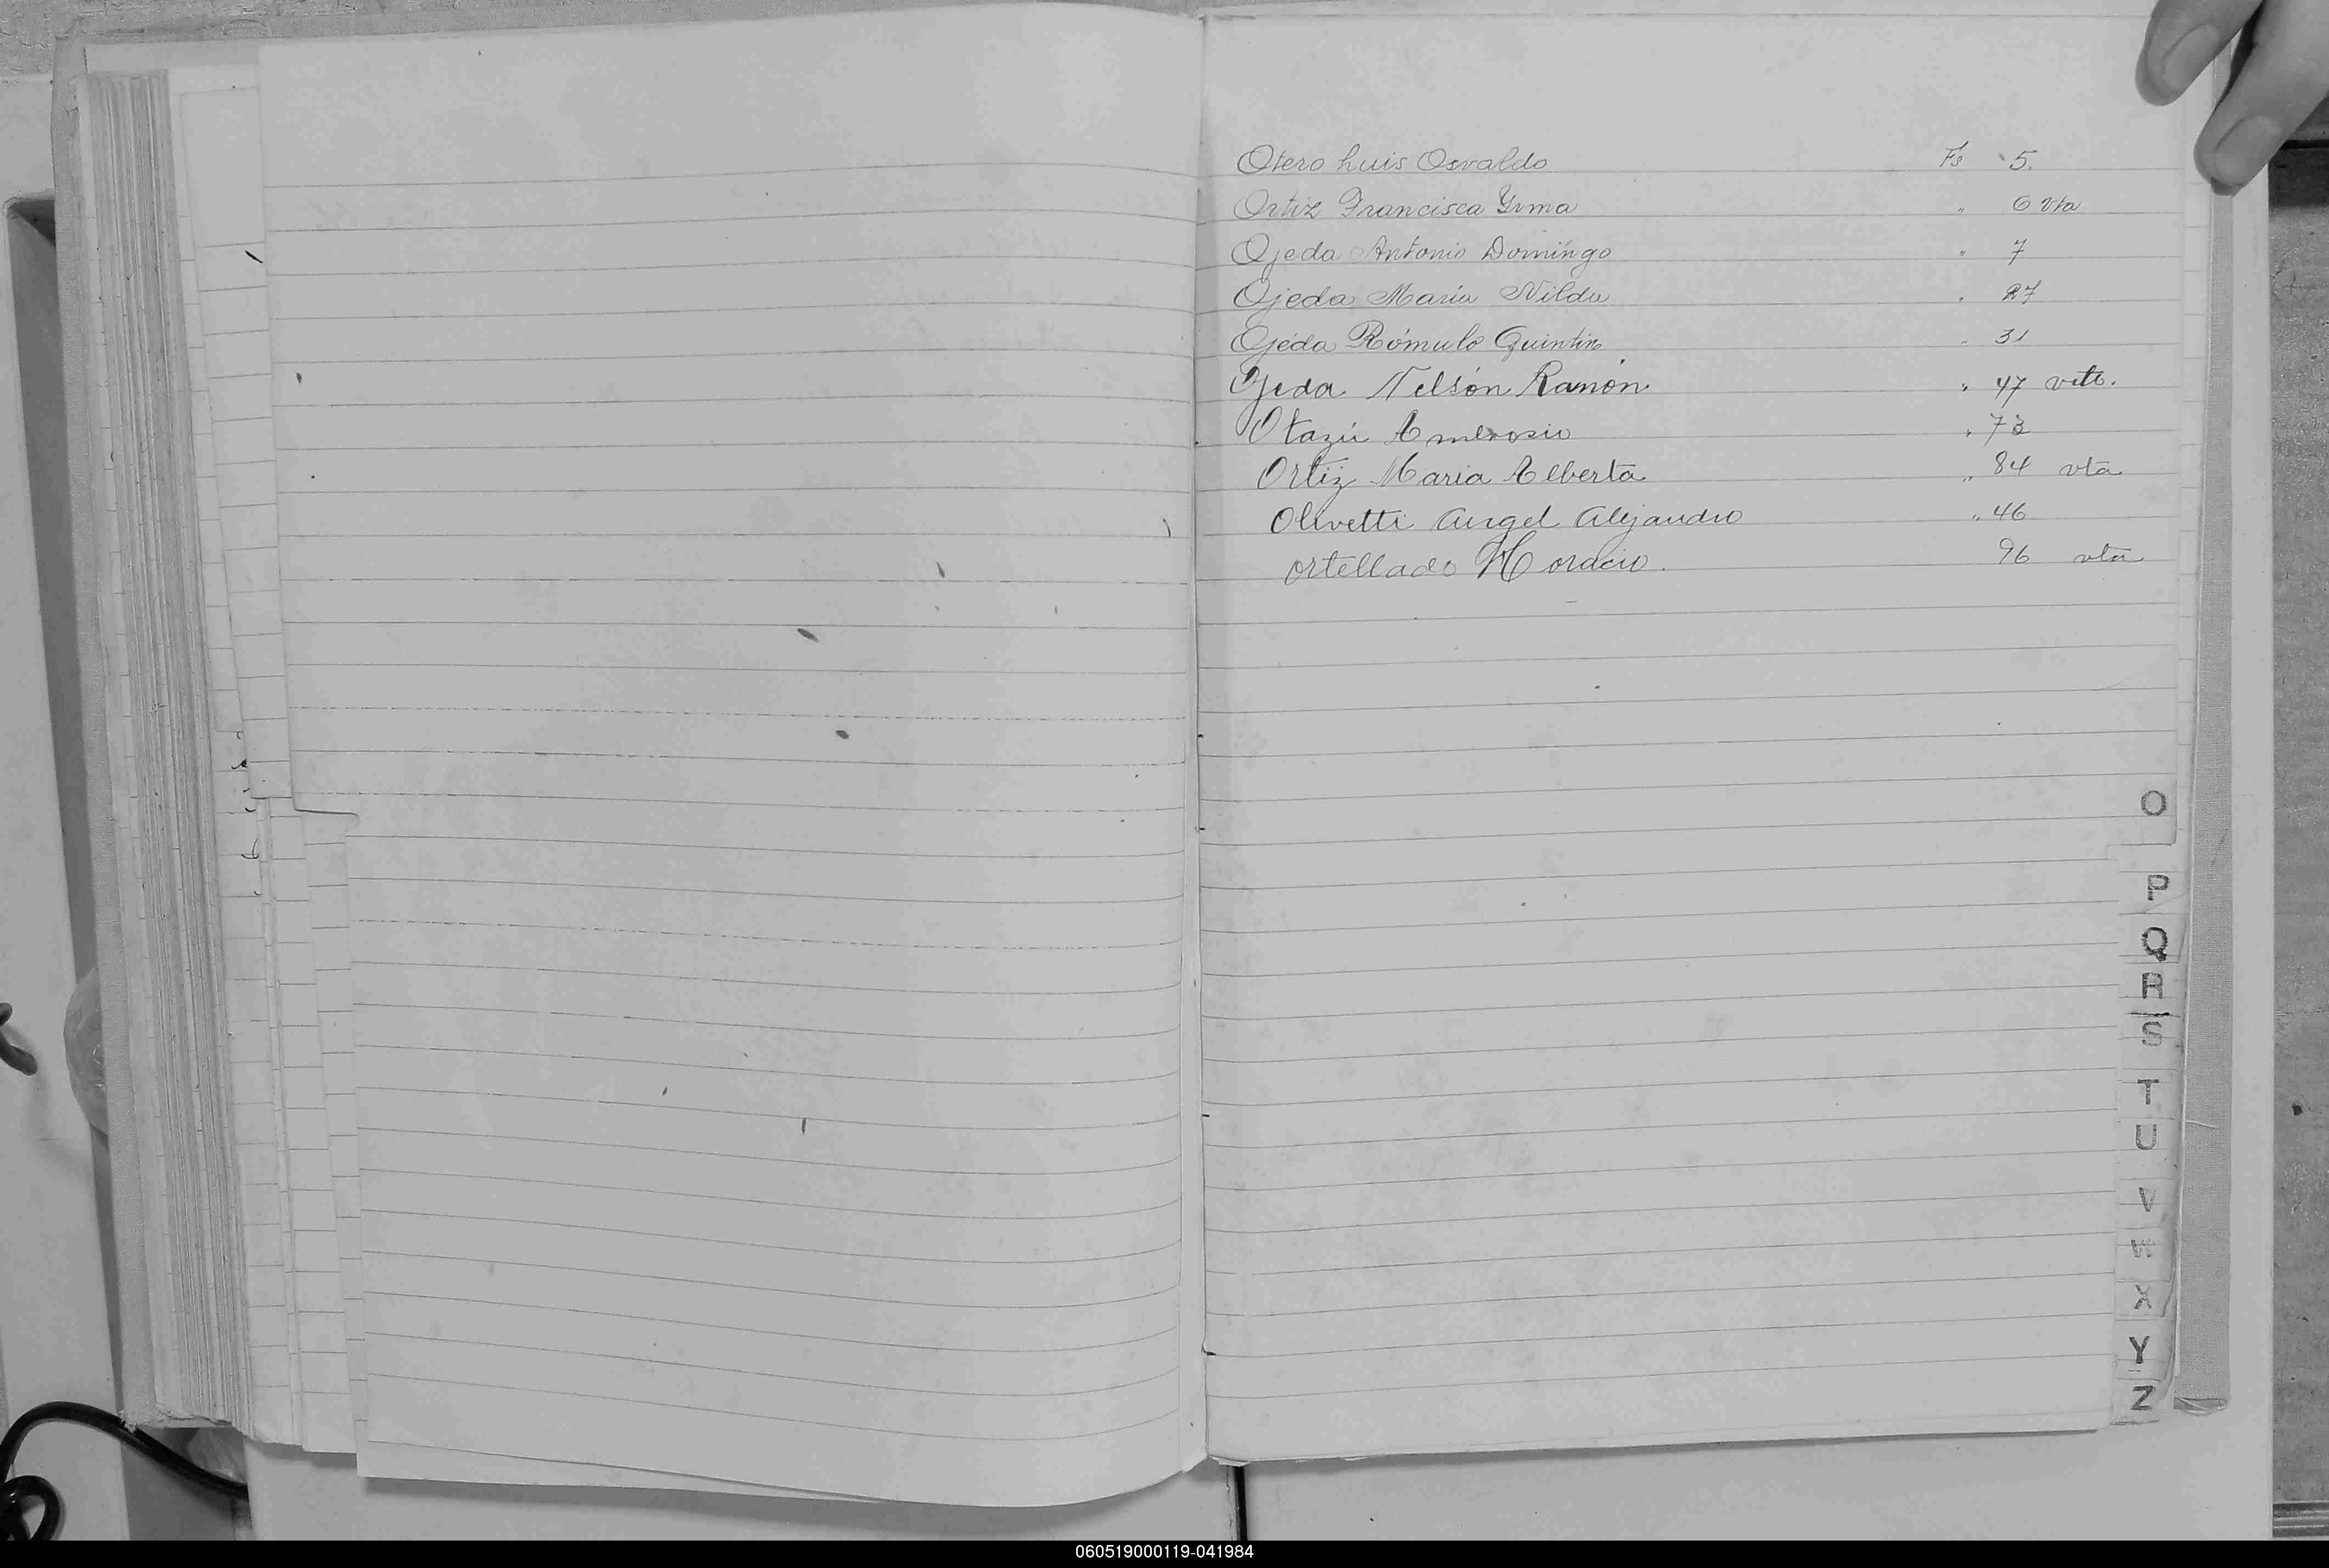 Otero Luis Osvaldo Fs 5.
Ortiz Francisca Yrma " 6 vta
Ojeda Antonio Domingo " 7
Ojeda María Nilda " 27
Ojeda Rómulo Quintin " 31
Ojeda Nelsón Ramón " 47 vta.
Otazú Ambrosio " 73
Ortiz Maria Alberta " 84 vta
Olivetti Angel Alejandro " 46
ortellado Horacio. 96 vta
O
P
Q
R
S
T
U
V
W
X
Y
Z
060519000119-041984